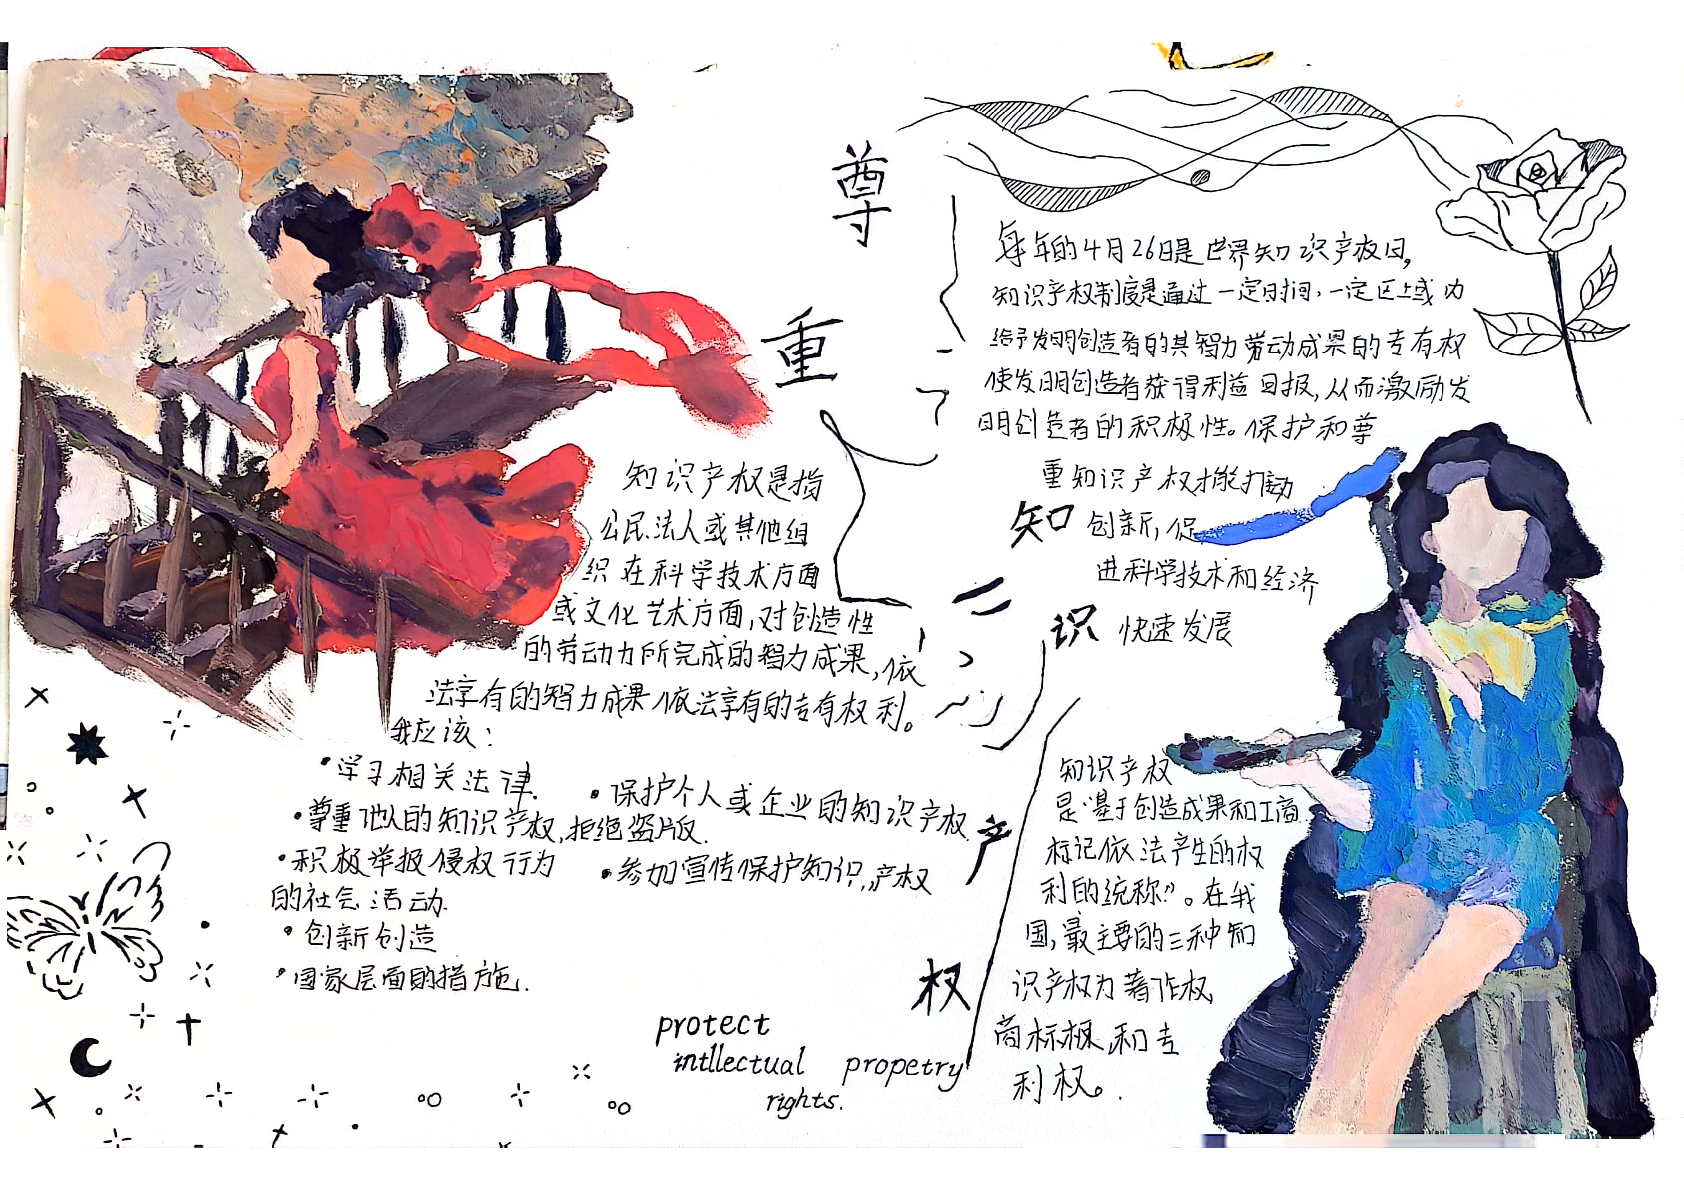 尊
重
知
识
产
权
每年的4月26日是世界知识产权日,
知识产权制度是通过一定时间,一定区域内
给予发明创造者的其智力劳动成果的专有权
使发明创造者获得利益回报,从而激励发
明创造者的积极性。保护和尊
重知识产权才能推动
创新,促
进科学技术和经济
快速发展
知识产权是指
公民、法人或其他组
织在科学技术方面
或文化艺术方面,对创造性
的劳动力所完成的智力成果,依
法享有的智力成果依法享有的专有权利。
我应该:
•学习相关法律.
•尊重他人的知识产权,拒绝盗版.
•积极举报侵权行为
的社会活动.
•创新创造
•国家层面的措施.
•保护个人或企业的知识产权.
•参加宣传保护知识产权
知识产权
是“基于创造成果和工商
标记依法产生的权
利的统称”。在我
国,最主要的三种知
识产权为著作权,
商标权,和专
利权。
protect
intllectual propetry
rights.